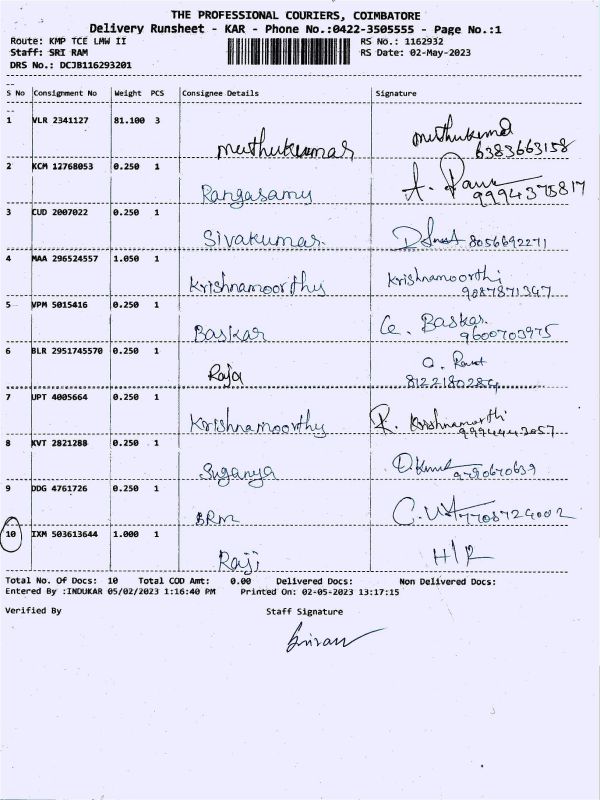 THE PROFESSIONAL COURIERS, COIMBATORE
Delivery Runsheet - KAR - Phone No.:0422-3505555 - Page No.:1
Route: KMP TCE LMW II RS No.: 1162932
Staff: SRI RAM RS Date: 02-May-2023
DRS No.: DCJB116293201
S No Consignment No Weight PCS Consignee Details Signature
1 VLR 2341127 81.100 3 muthukumar muthukumar
6383663158
2 KCM 12768053 0.250 1 Rangasamy A.
9994375817
3 CUD 2007022 0.250 1 Sivakumar. 8056692271
4 MAA 296524557 1.050 1 Krishnamoorthy Krishnamoorthi
9087871347
5 VPM 5015416 0.250 1 Baskar G. Baskar.
9600703975
6 BLR 2951745570 0.250 1 Raja
8122180284
7 UPT 4005664 0.250 1 Krishnamoorthy R. Krishnamoorthi
9994442057
8 KVT 2821288 0.250 1 Suganya
9790670639
9 DDG 4761726 0.250 1 BRM 7708724002
10 IXM 503613644 1.000 1 Raji H/R
Total No. Of Docs: 10 Total COD Amt: 0.00 Delivered Docs: Non Delivered Docs:
Entered By :INDUKAR 05/02/2023 1:16:40 PM Printed On: 02-05-2023 13:17:15
Verified By Staff Signature